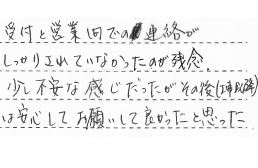 受付と営業間での連絡が
しっかりされていなかったのが残念。
少し不安な感じだったがその後(工事以降)
は安心してお願いして良かったと思った